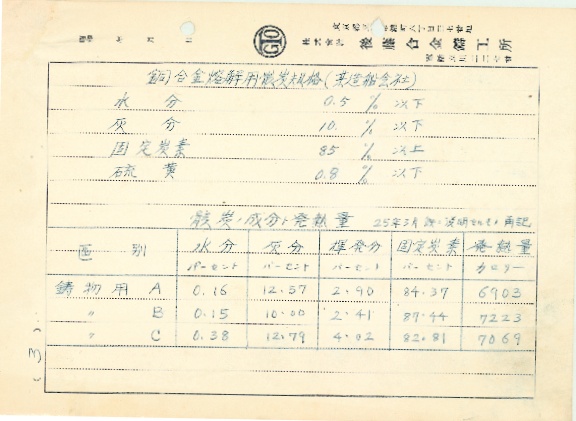 月
GTO
株式会社 後藤合金鋳工所
銅合金熔解用骸炭規格(某造船会社)
水分 0.5 % 以下
灰分 10. % 以下
固定炭素 85 % 以上
硫黄 0.8 % 以下
骸炭ノ成分ト発熱量 25年3月 再記
区別 水分 灰分 揮発分 固定炭素 発熱量
パーセント パーセント パーセント パーセント カロリー
鋳物用 A 0.16 12.57 2.90 84.37 6903
〃 B 0.15 10.00 2.41 87.44 7223
〃 C 0.38 12.79 4.02 82.81 7069
(3)